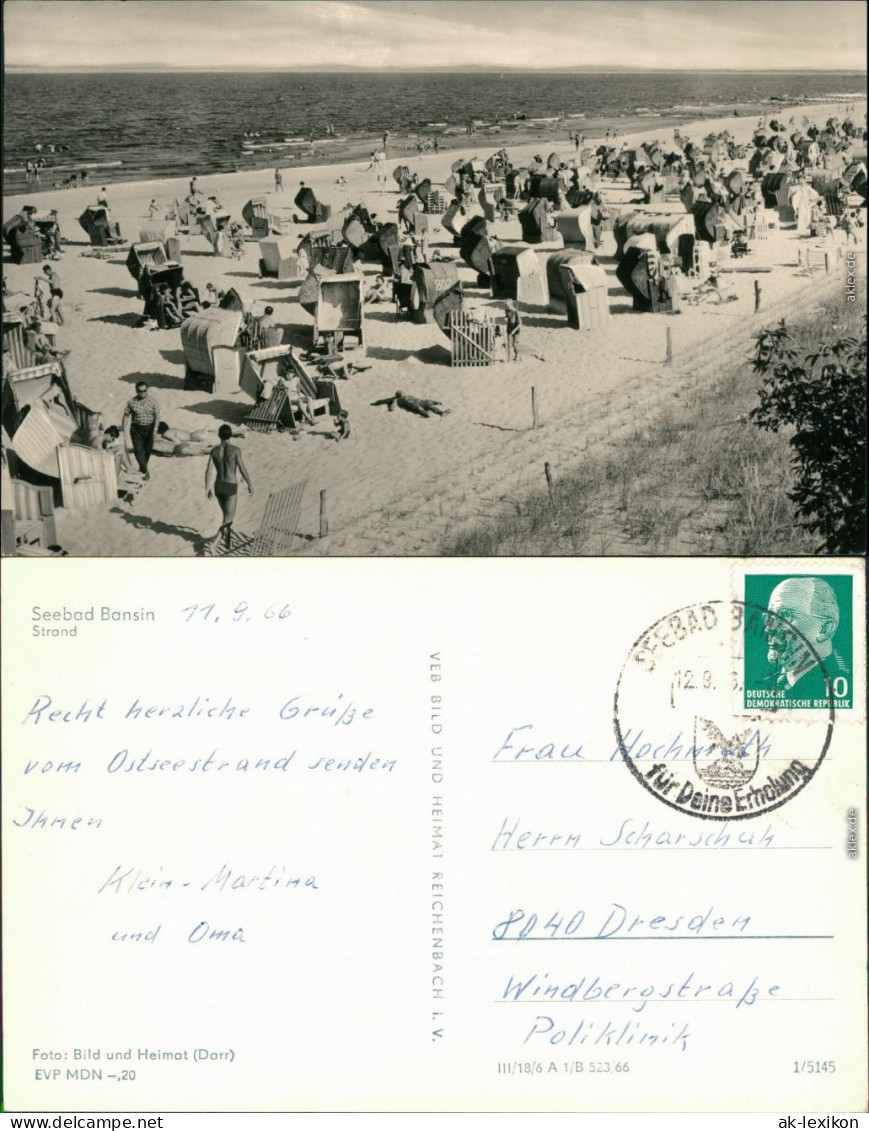 802
Seebad Bansin 11.9.66
Strand
Recht herzliche Grüße
vom Ostseestrand senden
Ihnen
Klein-Martina
und Oma
Foto: Bild und Heimat (Darr)
EVP MDN –,20
VEB BILD UND HEIMAT REICHENBACH i. V.
SEEBAD BANSIN
12.9.
für Deine Erholung
10
DEUTSCHE
DEMOKRATISCHE REPUBLIK
Frau Hochmuth
Herrn Scharschuh
8040 Dresden
Windbergstraße
Poliklinik
III/18/6 A 1/B 523/66
1/5145
aklex.de
aklex.de
www.delcampe.net
ak-lexikon